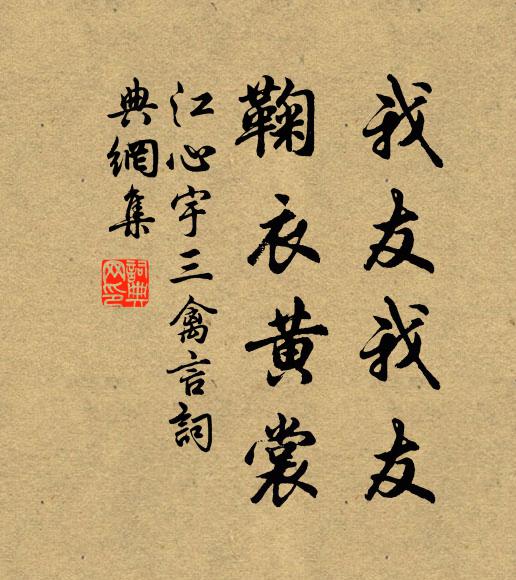 我友我友
鞠衣黄裳
江心宇三禽言詞
典網集
詞典网印